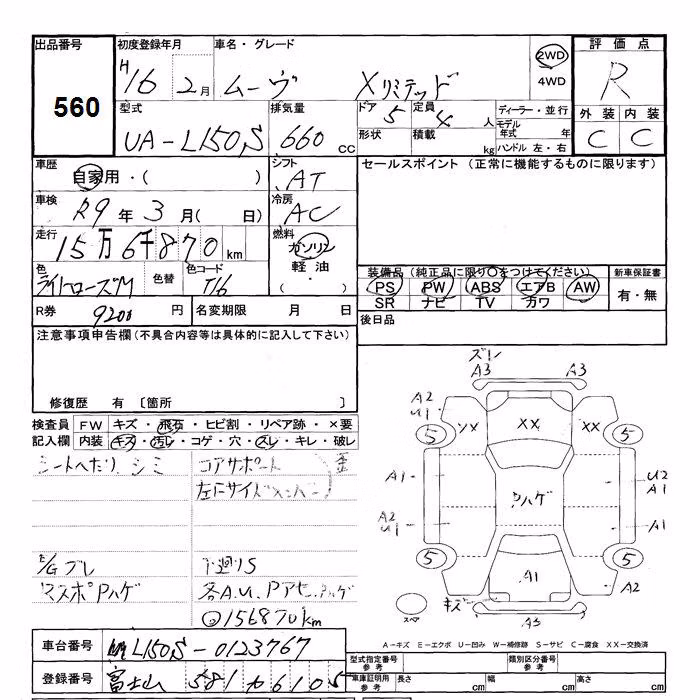 出品番号 初度登録年月 車名・グレード 2WD 4WD 評価点
560 H16 2月 ムーヴ Xリミテッド R
型式 排気量 ドア 定員 ディーラー・並行 外装 内装
UA-L150S 660 CC 5 4人 モデル年式 年 C C
形状 積載 kg ハンドル 左・右
車歴 シフト セールスポイント (正常に機能するものに限ります)
自家用・( ) AT
車検 冷房
R9年3月( 日) AC
走行 燃料
15万6千870km ガソリン
色 色替 色コード 軽油・( ) 装備品(純正品に限り○をつけてください) 新車保証書
ライトローズM T16 PS PW ABS エアB AW 有・無
SR ナビ TV カワ
R券 9200円 名変期限 月 日 後日品
注意事項申告欄(不具合内容等は具体的に記入して下さい)
修復歴 有 [箇所 ]
検査員 FW キズ・飛石・ヒビ割・リペア跡・×要
記入欄 内装 キズ・汚レ・コゲ・穴・スレ・キレ・破レ
シートへたり、シミ コアサポート
左Fサイドメンバー
E/Gブレ 下廻りS
マスポPハゲ 各A.U.Pアセ.Pハゲ
156870km
ズレ
A3 A3
A2 U1 XX XX XX
5 5
A1 Pハゲ U2 A1
A2 U1 A1
5 5
A1 A2
キズ A3
スペア
A-キズ E-エクボ U-凹み W-補修跡 S-サビ C-腐食 XX-交換済
車台番号 L150S-0123767
型式指定番号 参考 類別区分番号 参考
登録番号 富士山 581 か 6105
車庫証明用 参考 長さ cm 幅 cm 高さ cm